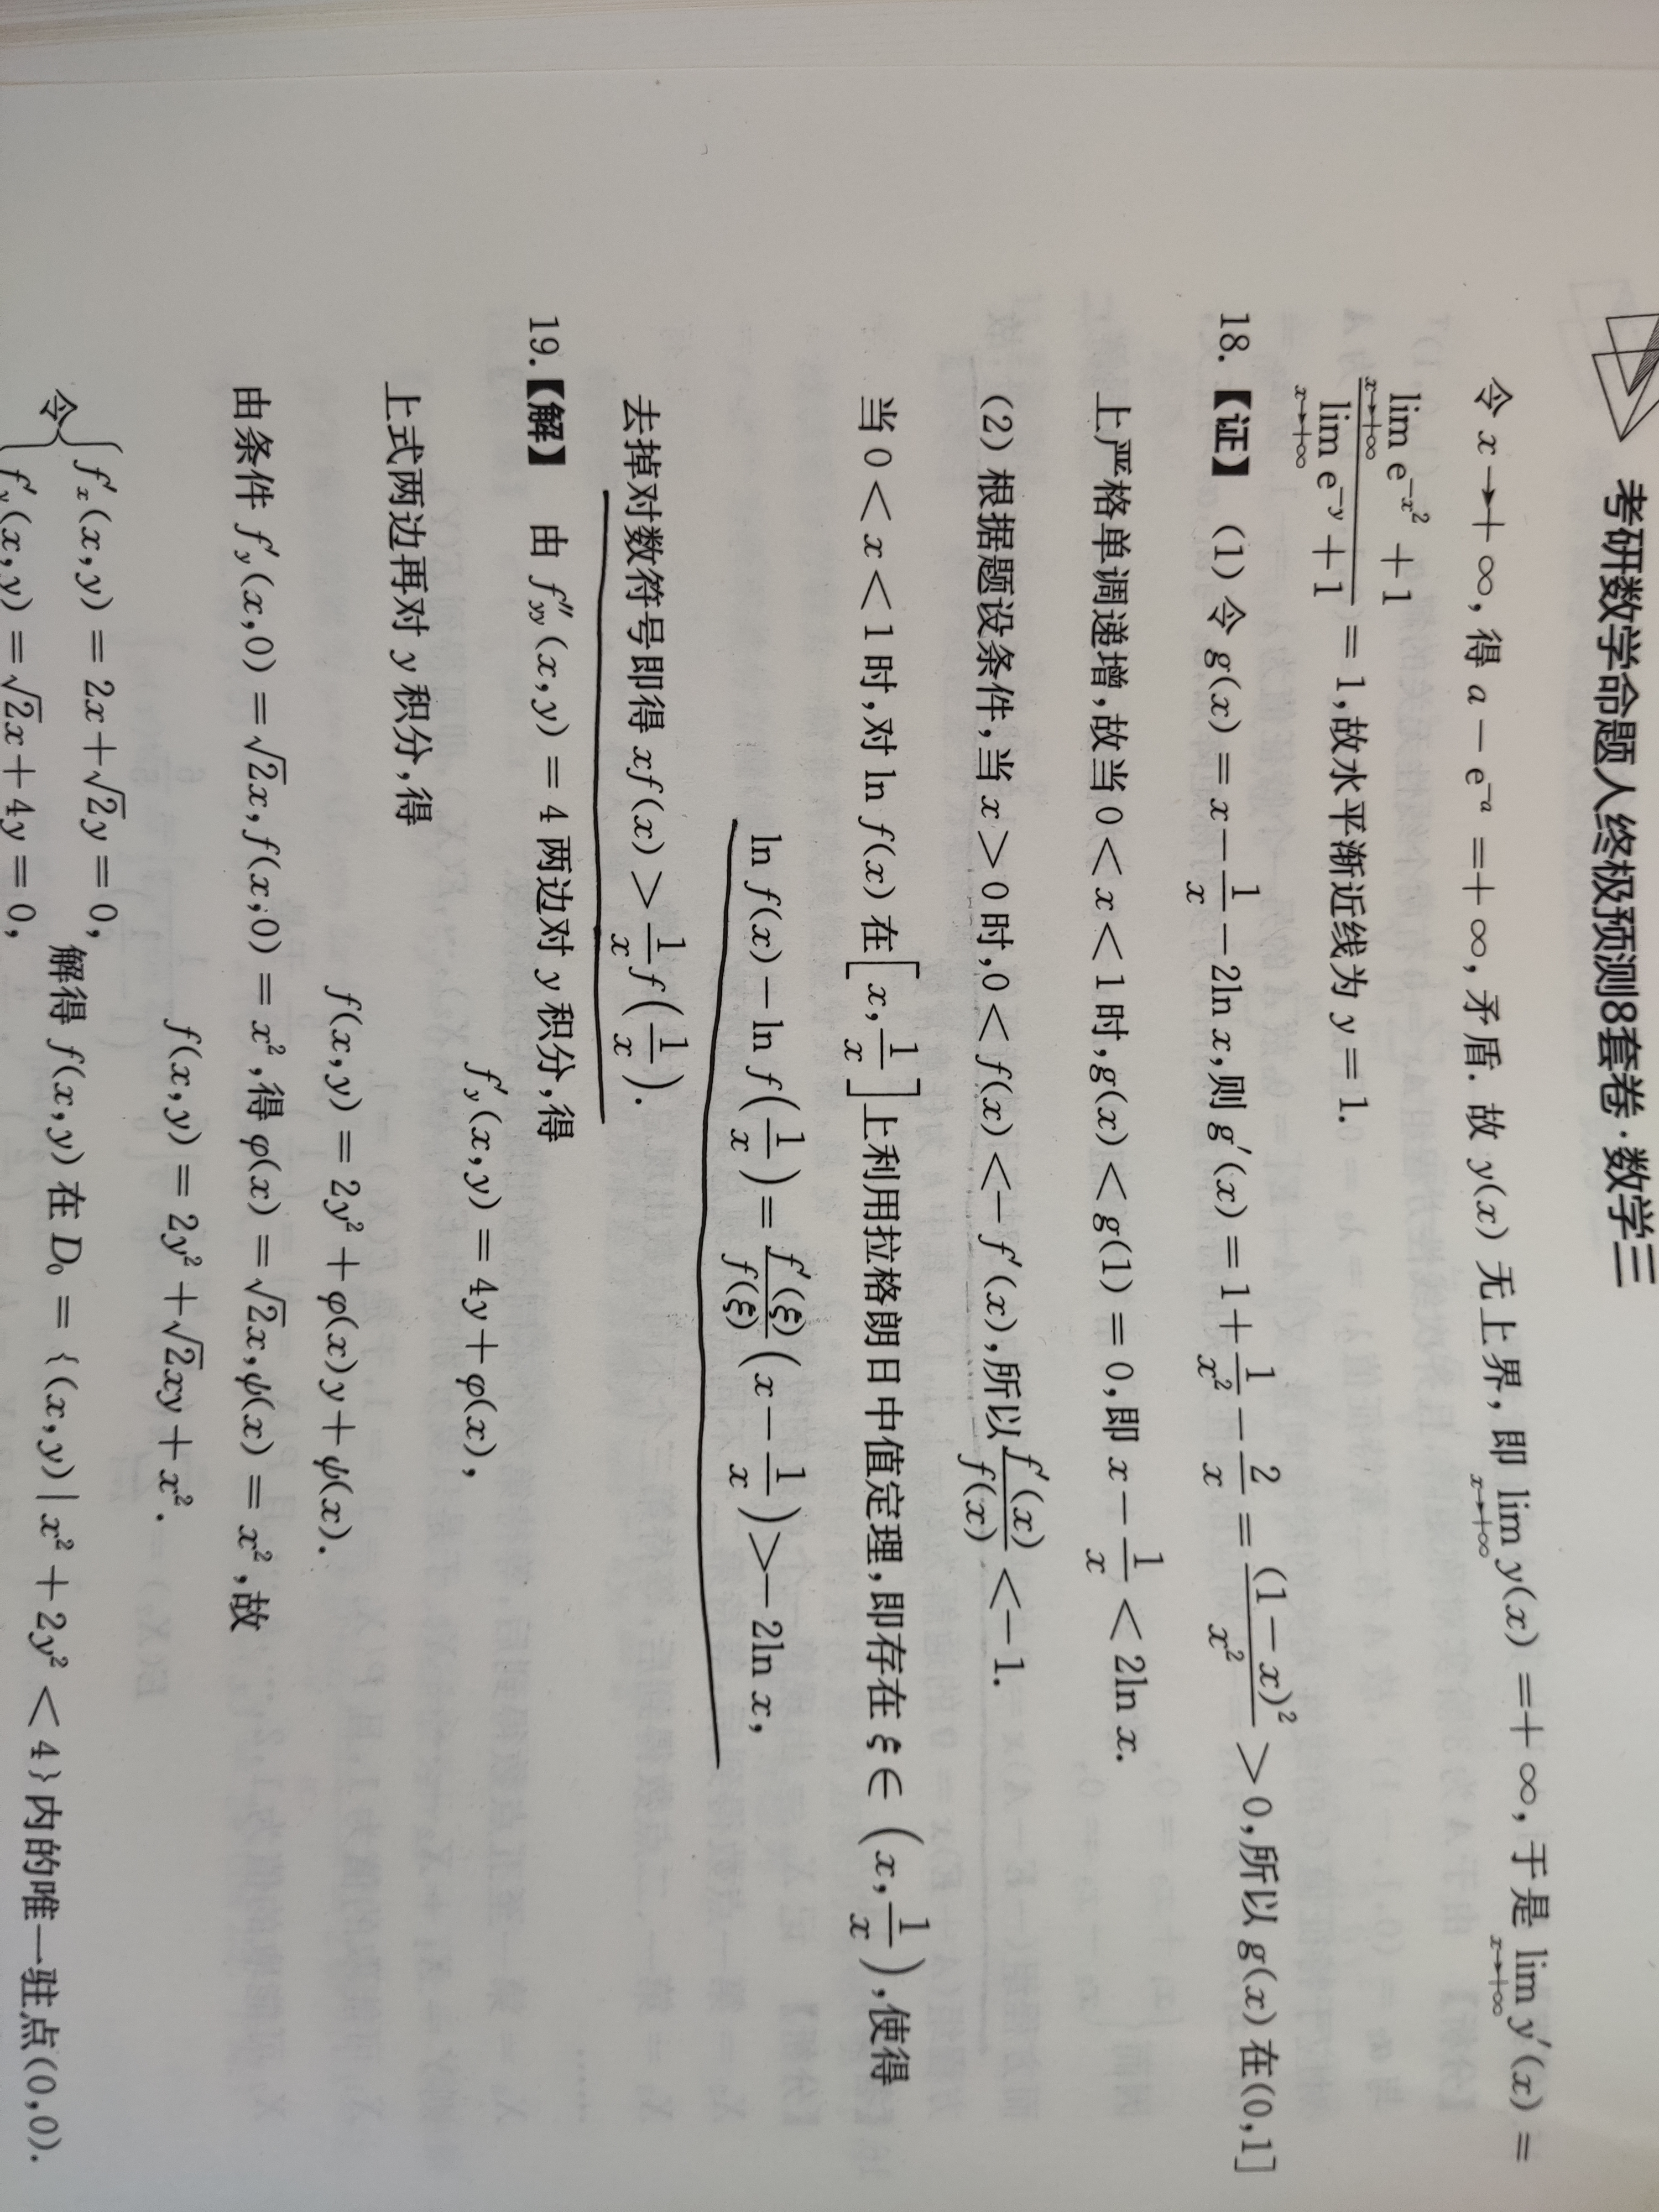 考研数学命题人终极预测8套卷·数学三
令 x→+∞, 得 a − e⁻ᵃ = +∞, 矛盾. 故 y(x) 无上界, 即 lim_{x→+∞} y(x) = +∞, 于是 lim_{x→+∞} y′(x) =
\frac{lim_{x→+∞} e^{-x²} + 1}{lim_{x→+∞} e^{-y} + 1} = 1, 故水平渐近线为 y = 1.
18.【证】 (1) 令 g(x) = x − \frac{1}{x} − 2ln x, 则 g′(x) = 1 + \frac{1}{x²} − \frac{2}{x} = \frac{(1 − x)²}{x²} > 0, 所以 g(x) 在(0,1]
上严格单调递增, 故当 0 < x < 1 时, g(x) < g(1) = 0, 即 x − \frac{1}{x} < 2ln x.
(2) 根据题设条件, 当 x > 0 时, 0 < f(x) < − f′(x), 所以 \frac{f′(x)}{f(x)} < −1.
当 0 < x < 1 时, 对 ln f(x) 在 [x, \frac{1}{x}] 上利用拉格朗日中值定理, 即存在 ξ ∈ (x, \frac{1}{x}), 使得
ln f(x) − ln f(\frac{1}{x}) = \frac{f′(ξ)}{f(ξ)} (x − \frac{1}{x}) > − 2ln x,
去掉对数符号即得 xf(x) > \frac{1}{x} f(\frac{1}{x}).
19.【解】 由 f″_{yy}(x,y) = 4 两边对 y 积分, 得
f′_y(x,y) = 4y + φ(x),
上式两边再对 y 积分, 得
f(x,y) = 2y² + φ(x)y + ψ(x).
由条件 f′_y(x,0) = √2x, f(x,0) = x², 得 φ(x) = √2x, ψ(x) = x², 故
f(x,y) = 2y² + √2xy + x².
令 { f′_x(x,y) = 2x + √2y = 0,
f′_y(x,y) = √2x + 4y = 0, 解得 f(x,y) 在 D₀ = {(x,y) | x² + 2y² < 4} 内的唯一驻点(0,0).